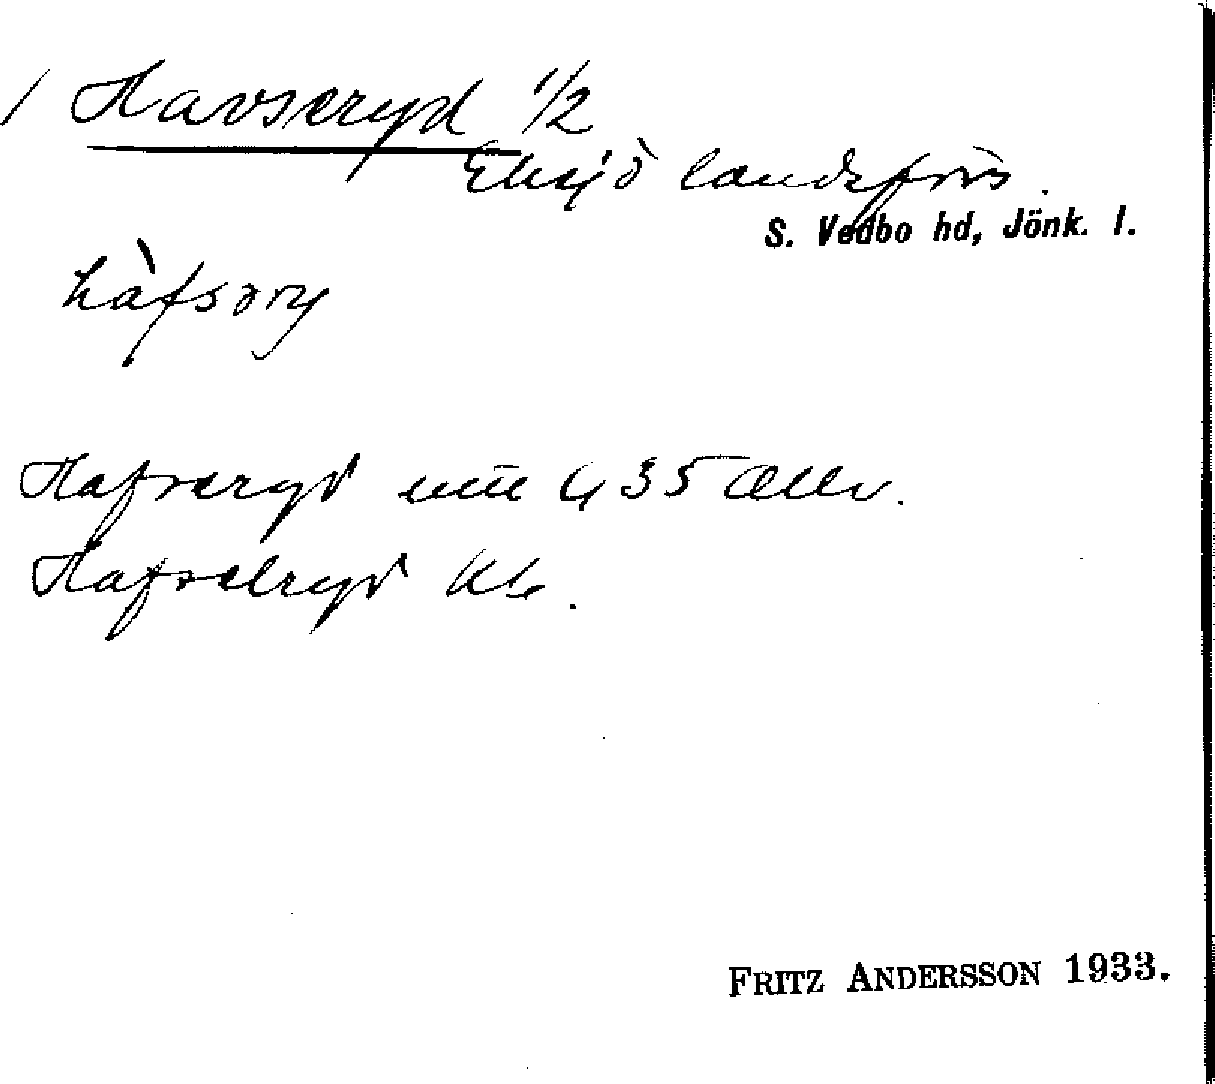 / Havseryd 1/2
Eksjö landsförs.
S. Vedbo hd, Jönk. l.
hàfsəry
Hafseryd
Hafselryd Kb.
FRITZ ANDERSSON 1933.